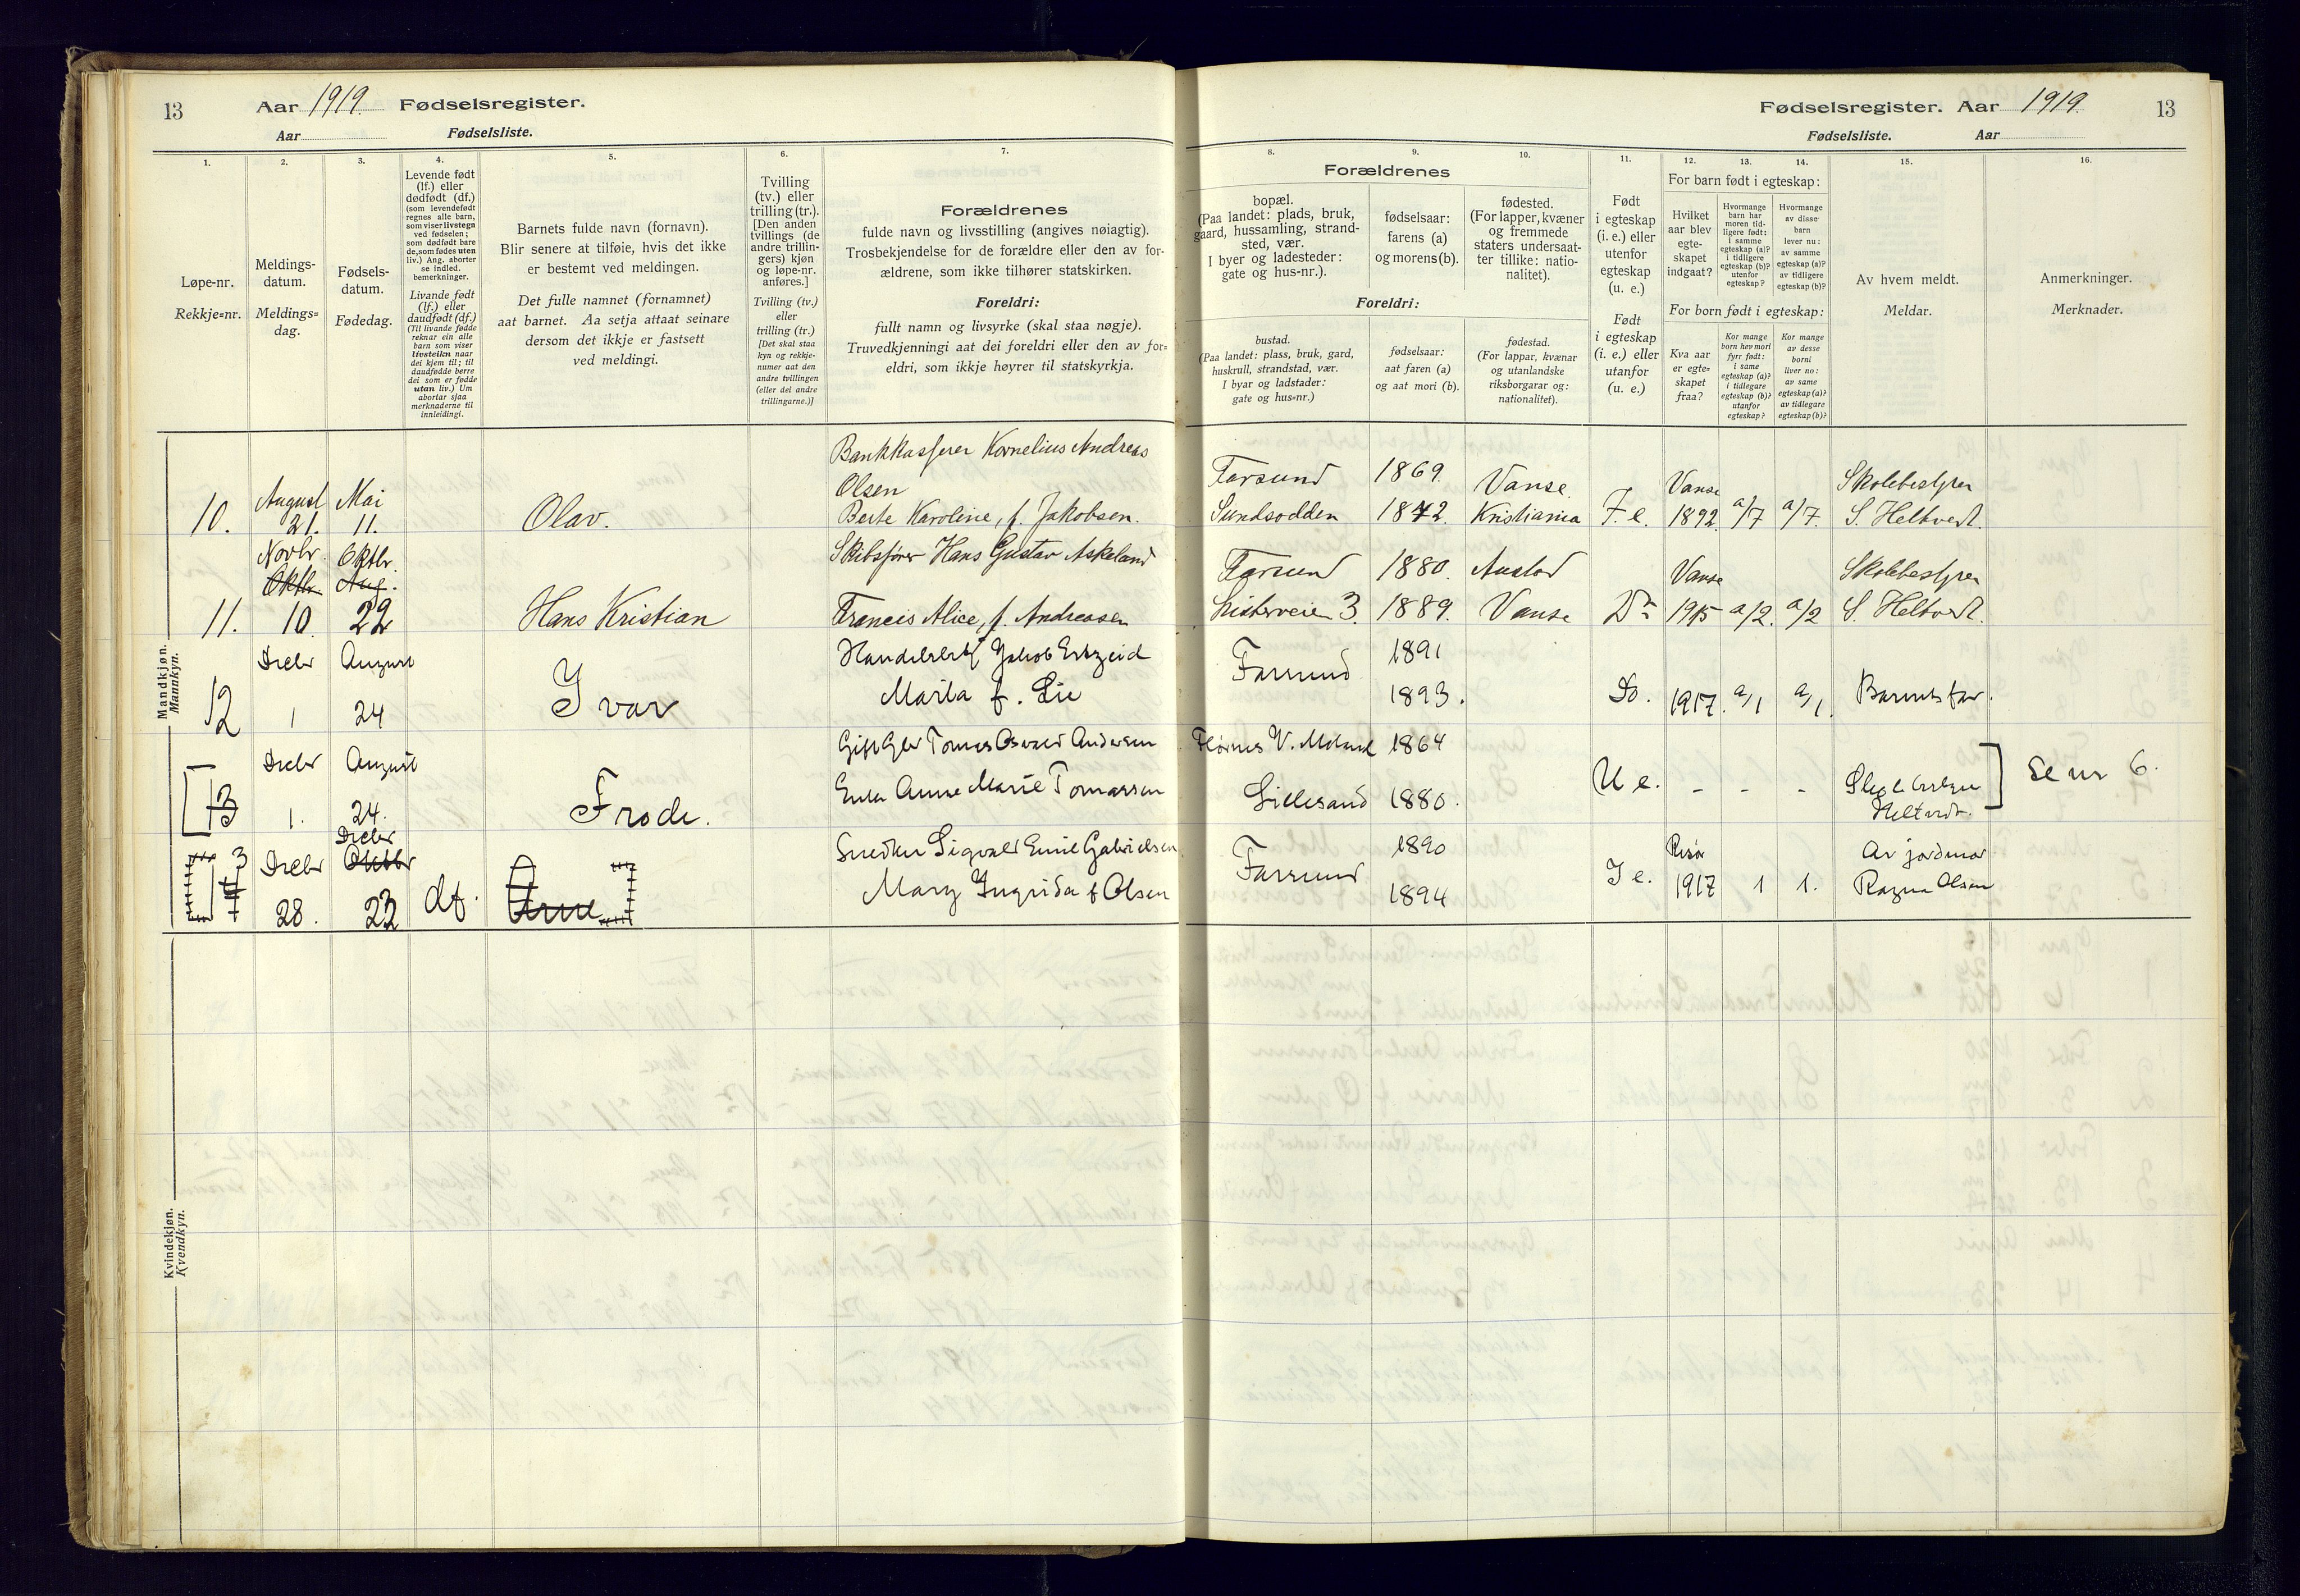 13 Aar 1919. Fødselsregister.
Aar Fødselsliste.
Fødselsregister. Aar 1919. 13
Fødselsliste. Aar
1.
Løpe-nr.
Rekkje=nr.
2.
Meldings-
datum.
Meldings=
dag.
3.
Fødsels-
datum.
Fødedag.
4.
Levende født
(lf.) eller
dødfødt (df.)
(som levendefødt
regnes alle barn,
som viser livstegn
ved fødselen;
som dødfødt bare
de, som fødes uten
liv.) Ang. aborter
se indled.
bemerkninger.
Livande født
(lf.) eller
daudfødt (df.)
(Til livande fødde
reknar ein alle
barn som viser
livsteikn naar
dei kjem til; til
daudfødde berre
dei som er fødde
utan liv.) Um
abortar sjaa
merknaderne til
innleidingi.
5.
Barnets fulde navn (fornavn).
Blir senere at tilføie, hvis det ikke
er bestemt ved meldingen.
Det fulle namnet (fornamnet)
aat barnet. Aa setja attaat seinare
dersom det ikkje er fastsett
ved meldingi.
6.
Tvilling
(tv.) eller
trilling (tr.).
[Den anden
tvillings (de
andre trillin-
gers) kjøn
og løpe-nr.
anføres.]
Tvilling (tv.)
eller
trilling (tr.)
[Det skal staa
kyn og rekkje-
numer aat den
andre tvillingen
(eller dei andre
trillingarne.)]
7.
Forældrenes
fulde navn og livsstilling (angives nøiagtig).
Trosbekjendelse for de forældre eller den av for-
ældrene, som ikke tilhører statskirken.
Foreldri:
fullt namn og livsyrke (skal staa nøgje).
Truvedkjenningi aat dei foreldri eller den av for=
eldri, som ikkje høyrer til statskyrkja.
Forældrenes
8.
bopæl.
(Paa landet: plads, bruk,
gaard, hussamling, strand-
sted, vær.
I byer og ladesteder:
gate og hus-nr.).
9.
fødselsaar:
farens (a)
og morens (b).
10.
fødested.
(For lapper, kvæner
og fremmede
staters undersaat-
ter tillike: natio-
nalitet).
Foreldri:
bustad.
(Paa landet: plass, bruk, gard,
huskrull, strandstad, vær.
I byar og ladstader:
gate og hus=nr.)
fødselsaar:
aat faren (a)
og aat mori (b).
fødestad.
(For lappar, kvænar
og utanlandske
riksborgarar og:
nationalitet).
11.
Født
i egteskap
(i. e.) eller
utenfor
egteskap
(u. e.)
Født
i egteskap
(i. e.) eller
utanfor
(u. e.)
12. 13. 14.
For barn født i egteskap:
Hvilket
aar blev
egte-
skapet
indgaat?
Hvormange
barn har
moren tid-
ligere født:
i samme
egteskap (a)?
i tidligere
egteskap (b)?
utenfor
egteskap?
Hvormange
av disse
barn
lever nu:
av samme
egteskap (a)?
av tidligere
egteskap (b)?
For born født i egteskap:
Kva aar
er egte=
skapet
fraa?
Kor mange
born hev mori
fyrr født:
i same
egteskap (a)?
i tidlegare
egteskap (b)?
utanfor
egteskap?
Kor mange
av desse
borni
liver no:
av same
egteskap (a)?
av tidlegare
egteskap (b)?
15.
Av hvem meldt.
Meldar.
16.
Anmerkninger.
Merknader.
Mandkjøn.
Mannkyn.
Bankkasserer Kornelius Andreas
Olsen
Farsund 1869. Vanse. Vanse Skolebestyrer
10. August 21. Mai 11. Olav. Berte Karoline, f. Jakobsen. Sundsodden 1872. Kristiania F. e. 1892. a/7 a/7. S. Heltvedt.
Novbr. Oktbr. Skibsfører Hans Gustav Askeland Farsund 1880. Austad Vanse Skolebestyrer
Oktbr. Aug.
11. 10. 29 Hans Kristian Francis Alice, f. Andreasen Listerveien 3. 1889. Vanse Do 1915 a/2. a/2 S. Heltvedt.
Decbr August Jakob Farsund 1891
12 1 24 Ivar Marta f. Lie 1893. Do. 1917. a/1 a/1. Barnets far.
Decbr August Gift Tomas Osvald Andersen 1864
13 1. 24. Frode. Anna Marie Tomassen Lillesand 1880. U e. - - - Heltvedt. Se nr 6.
Decbr
3 Decbr Oktbr Snedker Sigvald Emil Gabrielsen Farsund 1890 Av jordmor
28. 23 df. Arne Mary Ingrida f Olsen 1894 I e. 1917 1 1. Ragna Olsen
Kvindekjøn.
Kvendkyn.